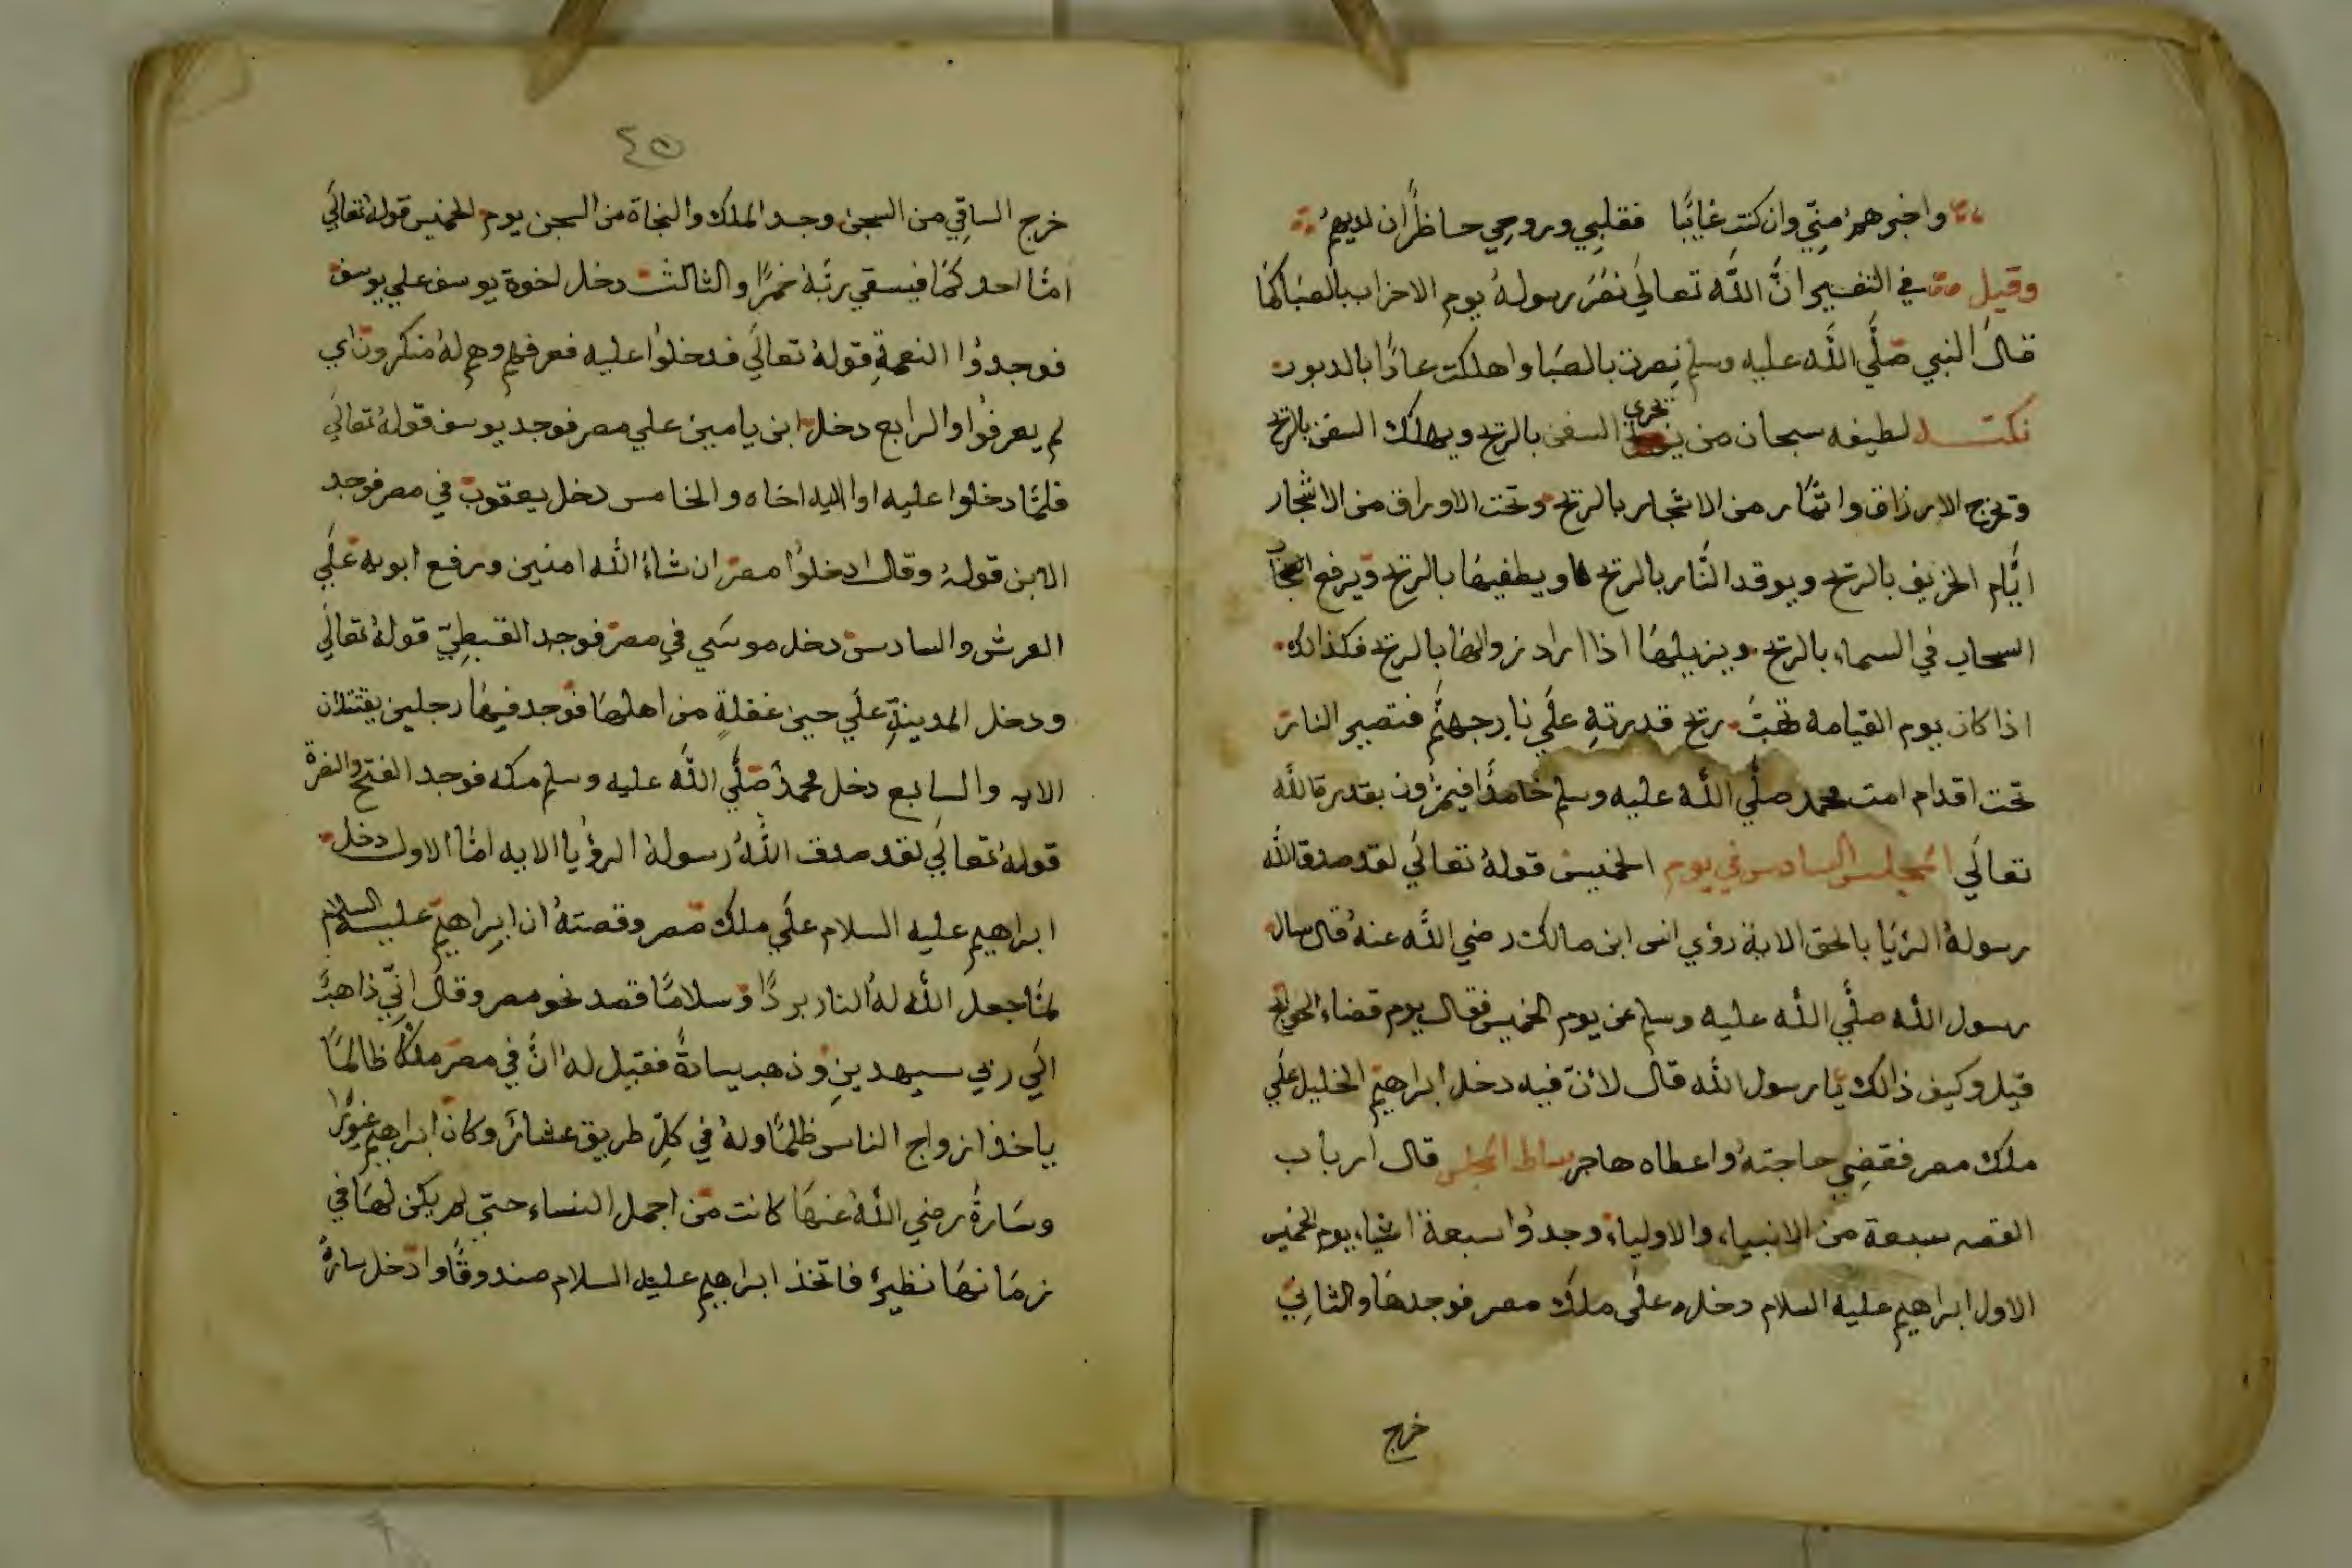 واخبرهمُ منِّي وان كنت غايبًا فقلبي وروحي حاظرًان لديهمُ
وقيل في التفسير انَّ اللّه تعالَي نصَرَ رسولهُ يوم الاحزاب بالصَبا كمَا
قالَ النبي صَلَّي اللَّه عليه وسلم نصرت بالصَبا واهلكت عادًا بالدبور
نكتـــه لطيفه سبحان من تجري السفن بالريح ويهلك السفن بالريح
وتخرج الارزاق واثمار من الاشجار بالريح وتحت الاوراق من الاشجار
ايَّام الخريف بالريح ويوقد النَّار بالريح ويطفيهَا بالريح ويرفع
السحاب في السماء بالريح ويزيلهَا اذا اراد زوالهَا بالريح فكذالك
اذا كان يوم القيامه تهبُّ ريح قدرتهِ علَي نار جهنَّم فتصير النار
تحت اقدام امت محمد صلَّي اللَّه عليه وسلم خامدًا فيمرون بقدرة اللّه
تعالَي المجلس السادس في يوم الخميس قولهُ تعالَي لقد صدق اللّه
رسولهُ الرُيَا بالحق الاية رؤي انس ابن مالكت رضي اللَّه عنهُ قال سال
رسول اللّه صلَّي اللَّه عليه وسلم عن يوم الخميس فقال يوم قضاء الحوايج
قيل وكيف ذالك يَا رسول اللّه قالَ لانّ فيه دخل ابراهيم الخليل علَي
ملك مصر فقضِي حاجتهُ واعطاه هاجر بساط المجلس قال ارباب
القصه سبعة من الانبياء والاولياء وجدوُا سبعة اشياء يوم الخميس
الاول ابراهيم عليه السلام دخل علَي ملك مصر فوجدهَا والثانِي
خرج
٤٥
خرج الساقِي من السجن وجد الملك والنجاة من السجن يوم الخميس قولهُ تعالَي
امَّا احدكمَا فيسقي ربَّهُ خمرًا والثالث دخل اخوة يوسف علي يوسف
فوجدوُا النعمةِ قولهُ تعالَي فدخلوُا عليه فعرفهم وهم لهُ منكرون اي
لم يعرفوُا والرابع دخل ابن يامين علي مصر فوجد يوسف قولهُ تعالَي
فلمَّا دخلوا عليه اوا اليه اخاه والخامس دخل يعقوب في مصر فوجد
الابن قولهُ وقال ادخلوُا مصر ان شاءَ اللّه امنين ورفع ابويه علَي
العرش والسادس دخل موسَي في مصر فوجد القبطِيّ قولهُ تعالَي
ودخل المدينةِ علَي حين غفلةٍ من اهلهَا فوجد فيهَا رجلين يقتتلان
الايه والسابع دخل محمدٌ صَلَّي اللَّه عليه وسلم مكه فوجد الفتح والنصرة
قولهُ تعالَي لقد صدق اللَّهُ رسولهُ الرؤيا الايه امَّا الاول دخل
ابراهيم عليه السلام علَي ملك مصر وقصتهُ ان ابراهيم عليه السلام
لمَّا جعل اللّه لهُ النار بردًا وسلامًا قصد نحو مصر وقالَ انِّي ذاهبٌ
الَي ربّي سيهدينِ وذهب بسارةُ فقيل لهُ انَّ في مصر ملكًا ظالمًا
ياخذ ازواج الناس ظلمًا ولهُ في كلِّ طريق عشار وكان ابراهيم غيورًا
وسَارةُ رضي اللّهُ عنهَا كانت من اجمل النساء حتَّي لم يكن لهَا في
زمَانهَا نظيرٌ فاتّخذ ابراهيم عليه السلام صندوقًا وادخل سارةُ